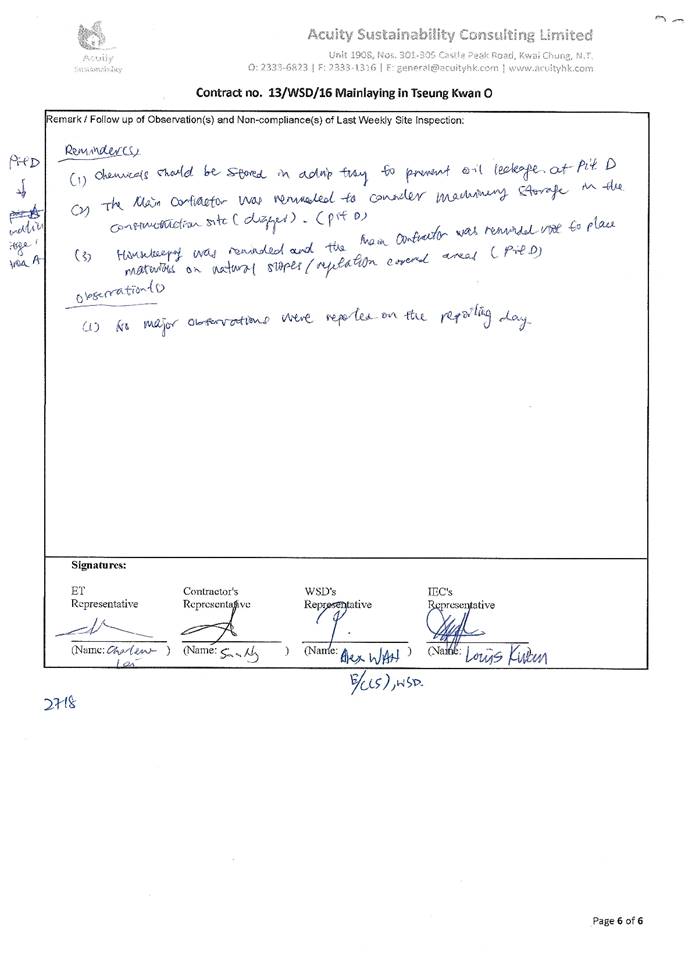 Acuity
Sustainability
Acuity Sustainability Consulting Limited
Unit 1908, Nos. 301-305 Castle Peak Road, Kwai Chung, N.T.
O: 2333-6823 | F: 2333-1316 | E: general@acuityhk.com | www.acuityhk.com
Contract no. 13/WSD/16 Mainlaying in Tseung Kwan O
Remark / Follow up of Observation(s) and Non-compliance(s) of Last Weekly Site Inspection:
Reminder(s)
(1) Chemicals should be stored in a drip tray to prevent oil leakage at Pit D
(2) The Main Contractor was reminded to consider machinery storage in the
construction site (digger). (Pit D)
(3) Housekeeping was reminded and the Main Contractor was reminded not to place
materials on natural slopes / covered areas (Pit D)
Observation(s)
(1) No major observations were reported on the reporting day.
Pit D
Signatures:
ET
Representative
Contractor's
Representative
WSD's
Representative
IEC's
Representative
(Name: )
(Name: )
(Name: Alex WAN )
(Name: Louis Kwan
E/CLS), WSD.
2718
Page 6 of 6